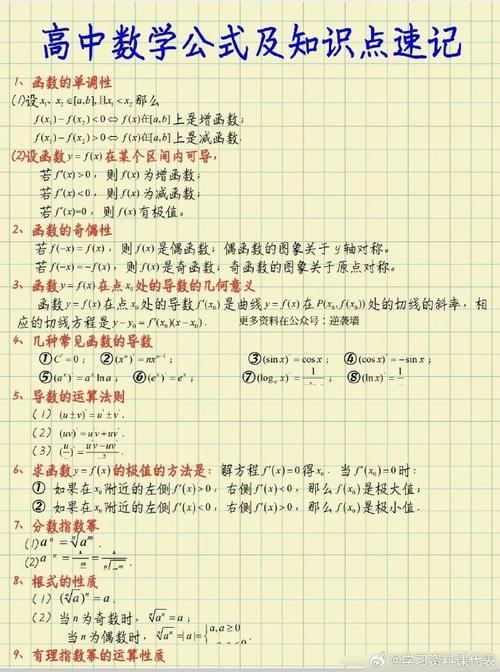 高中数学公式及知识点速记
1、函数的单调性
(1)设x₁、x₂∈[a,b],且x₁<x₂那么
f(x₁)-f(x₂)<0⇔f(x)在[a,b]上是增函数;
f(x₁)-f(x₂)>0⇔f(x)在[a,b]上是减函数.
(2)设函数y=f(x)在某个区间内可导,
若f'(x)>0,则f(x)为增函数;
若f'(x)<0,则f(x)为减函数;
若f'(x)=0,则f(x)有极值。
2、函数的奇偶性
若f(-x)=f(x),则f(x)是偶函数;偶函数的图象关于y轴对称。
若f(-x)=-f(x),则f(x)是奇函数;奇函数的图象关于原点对称。
3、函数y=f(x)在点x₀处的导数的几何意义
函数y=f(x)在点x₀处的导数f'(x₀)是曲线y=f(x)在P(x₀,f(x₀))处的切线的斜率,相
应的切线方程是y-y₀=f'(x₀)(x-x₀). 更多资料在公众号:逆袭墙
4、几种常见函数的导数
①C'=0; ②(xⁿ)'=nxⁿ⁻¹; ③(sin x)'=cos x; ④(cos x)'=-sin x;
⑤(aˣ)'=aˣ ln a; ⑥(eˣ)'=eˣ; ⑦(logₐ x)'= ; ⑧(ln x)'= .
5、导数的运算法则
(1)(u±v)'=u'±v'.
(2)(uv)'=u'v+uv'.
(3)(u/v)'=(u'v-uv')/v².
6、求函数y=f(x)的极值的方法是:解方程f'(x)=0得x₀.当f'(x₀)=0时:
① 如果在x₀附近的左侧f'(x)>0,右侧f'(x)<0,那么f(x₀)是极大值;
② 如果在x₀附近的左侧f'(x)<0,右侧f'(x)>0,那么f(x₀)是极小值.
7、分数指数幂
(1)a =ⁿ√aᵐ.
(2)a = = .
8、根式的性质
(1)(ⁿ√a)ⁿ=a;
(2)当n为奇数时,ⁿ√aⁿ=a;
当n为偶数时,ⁿ√aⁿ=|a|={a,a≥0
9、有理指数幂的运算性质
@学习资料课代表